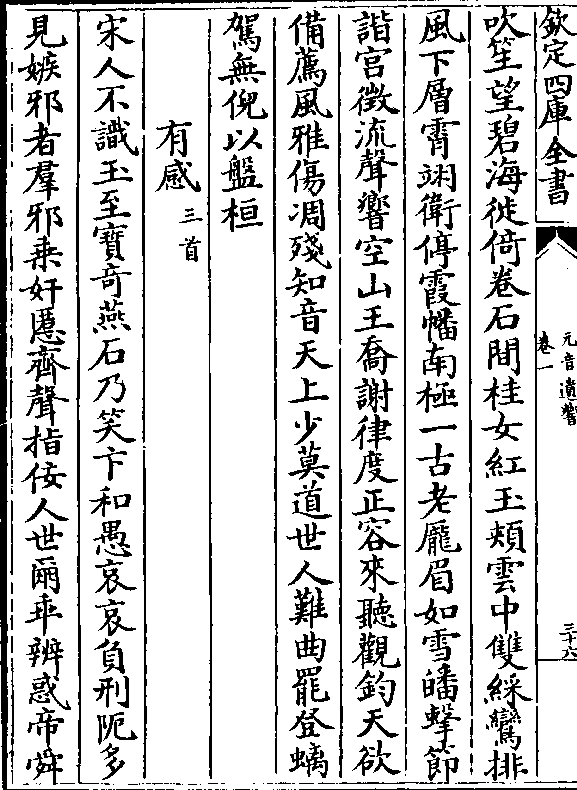 欽定四庫全書
元音遺響
卷一
三十六
吹笙望碧海徙倚卷石間桂女紅玉頰雲中雙綵鸞排
風下層霄翊衛停霞幡南極一古老龎眉如雪皤擊節
諧宮徴流聲響空山王喬謝律度正容來聽觀鈞天欲
備薦風雅傷凋殘知音天上少莫道世人難曲罷登螭
駕無倪以盤桓
有感三首
宋人不識玉至寶奇燕石乃笑卞和愚哀哀負刑阨多
見嫉邪者羣邪乗奸慝齊聲指佞人世爾乖辨惑帝舜